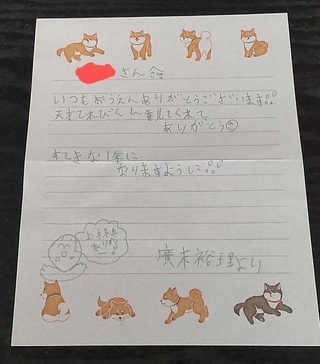 さんへ
いつもおうえんありがとうございます!!
天才てれびくん観てくれて
ありがとう☺
すてきな1年に
なりますように!!
廣末裕理より